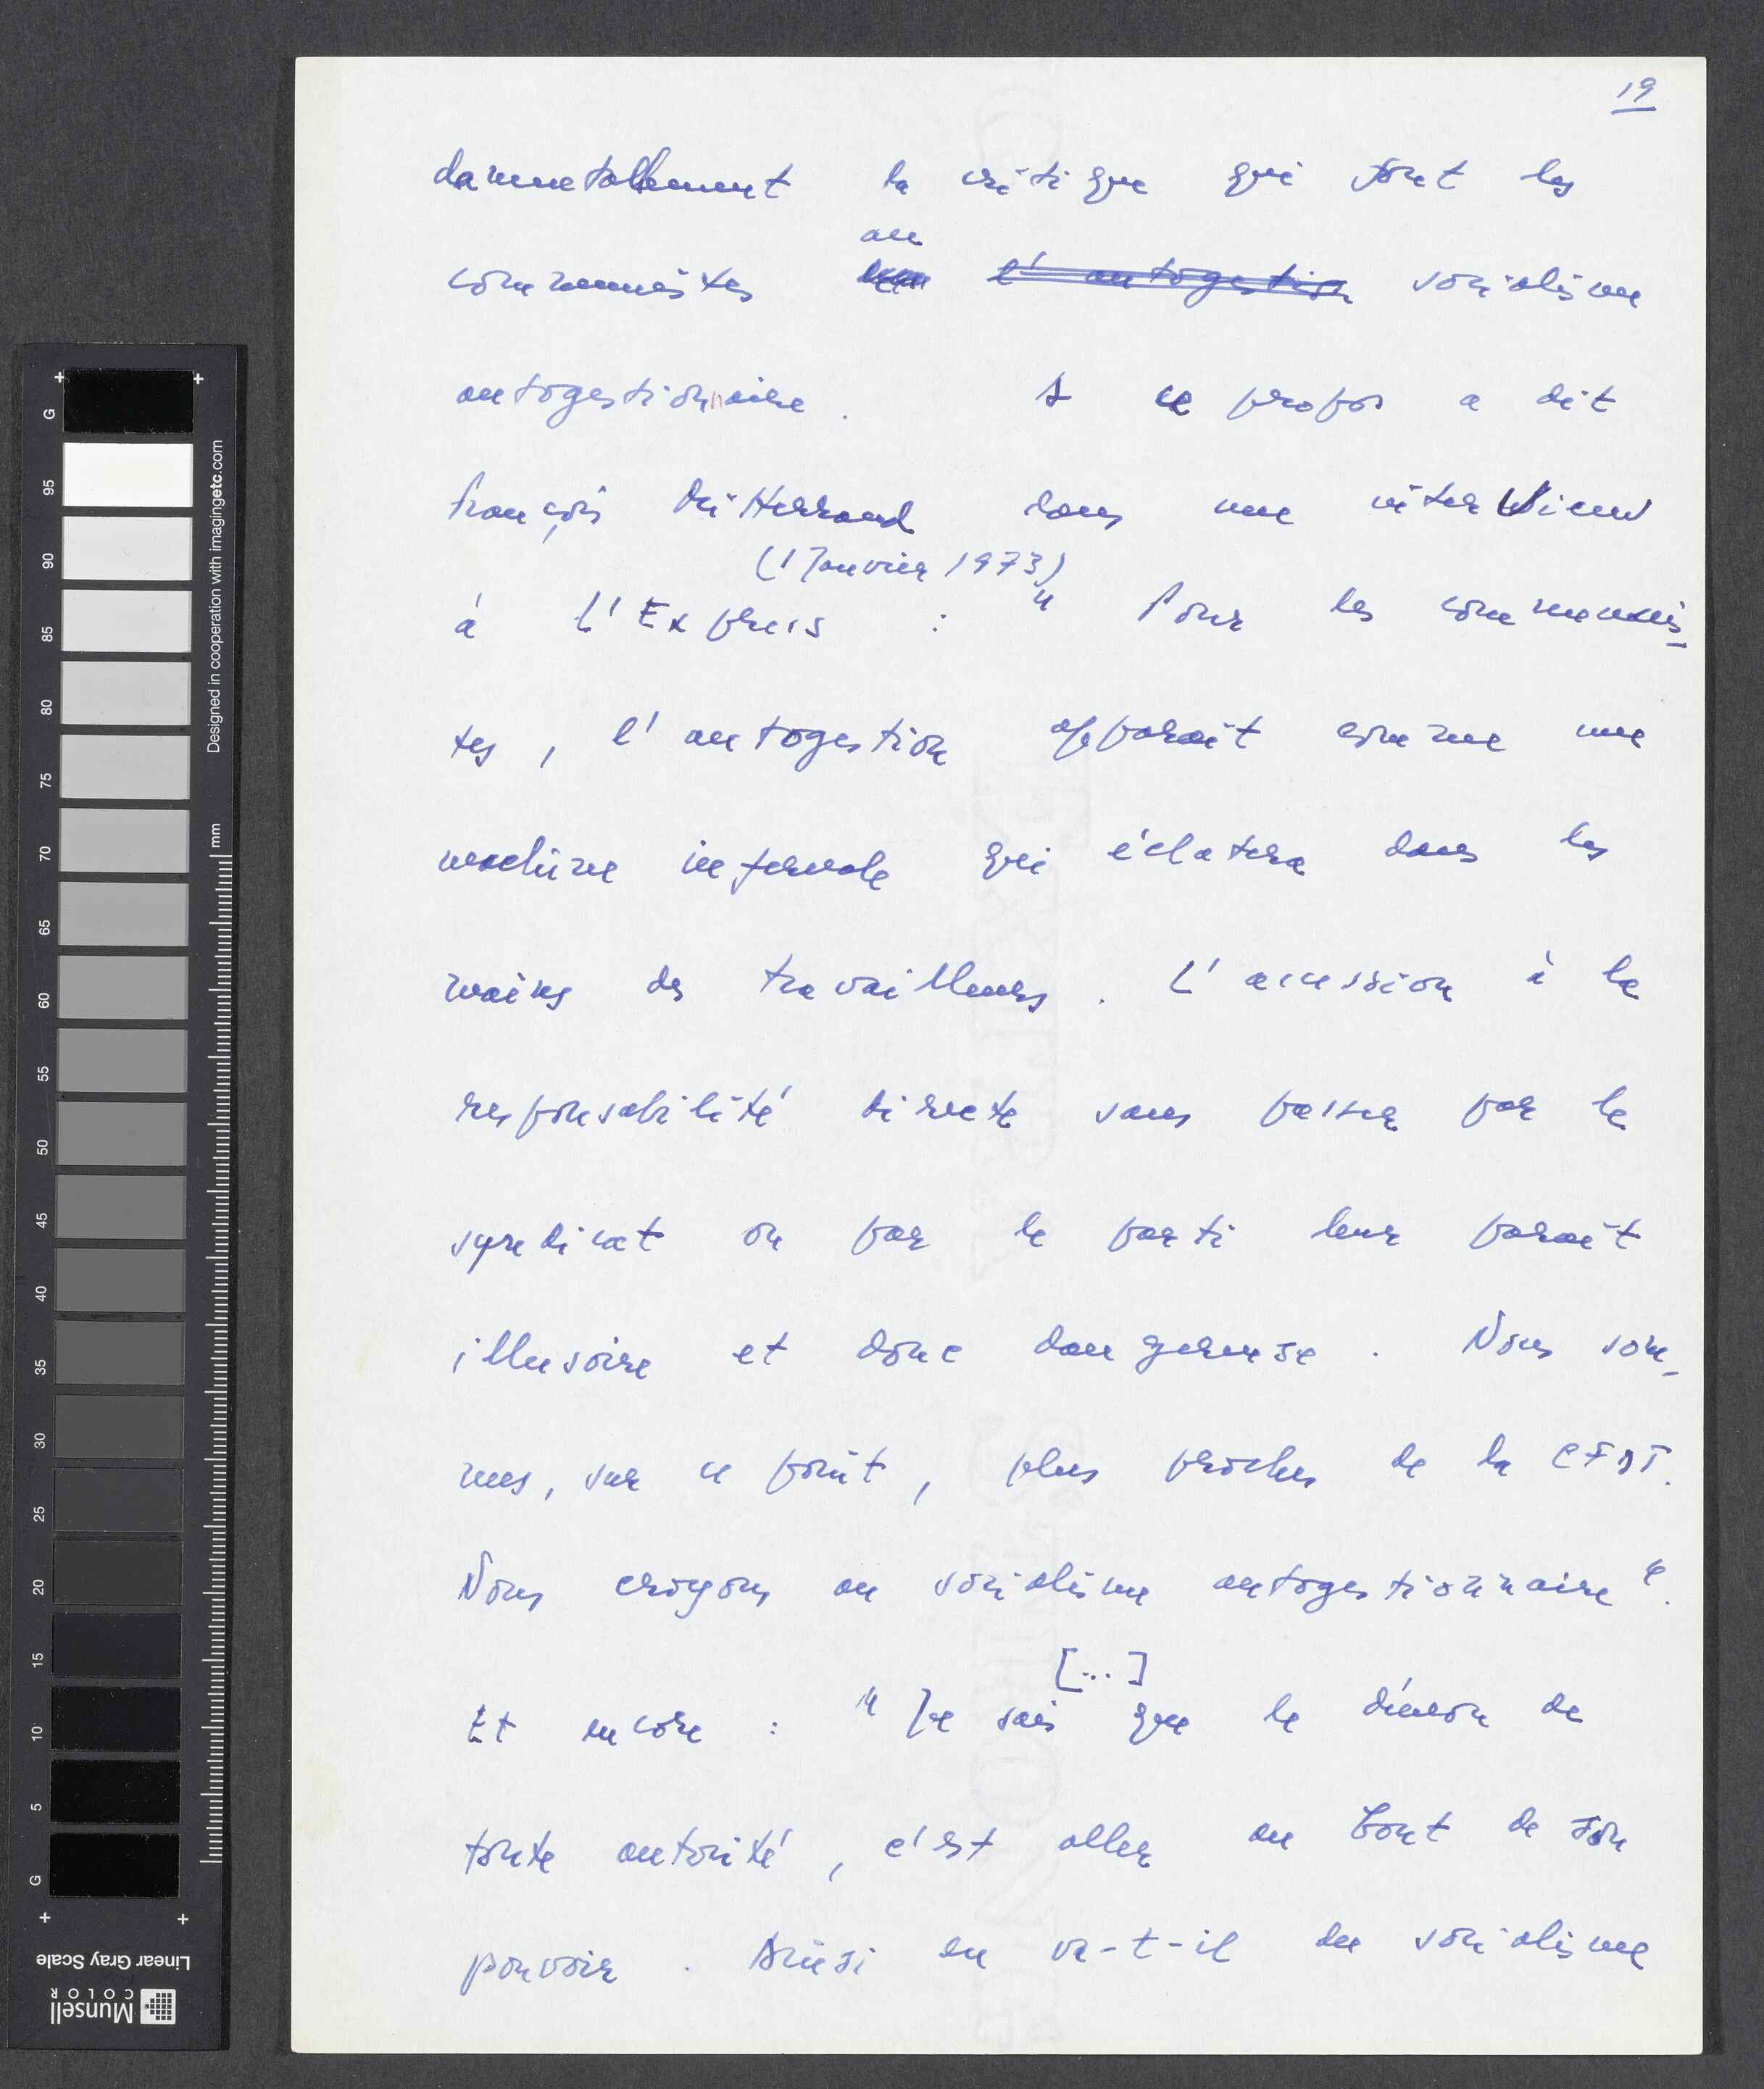 19
damnetallement la critique qui font les
au
communistes l'autogestion socialisme
autogestionnaire. A ce propos a dit
François Mitterrand dans une interwieuw
(1 Janvier 1973)
à L'Express : " Pour les communis-
tes, l'autogestion apparaît comme une
machine infernale qui éclatera dans les
mains des travailleurs. L'accession à la
responsabilité directe sans passer par le
syndicat ou par le parti leur paraît
illusoire et donc dangereuse. Nous som-
mes, sur ce point, plus proches de la CFDT.
Nous croyons au socialisme autogestionnaire".
[...]
Et encore : " Je sais que le démon de
toute autorité, c'est aller au bout de son
pouvoir. Ainsi en va-t-il du socialisme
G
95
90
85
80
75
70
65
60
55
50
45
40
35
30
25
20
15
10
5
G
Designed in cooperation with imagingetc.com
mm
Linear Gray Scale
Munsell
COLOR